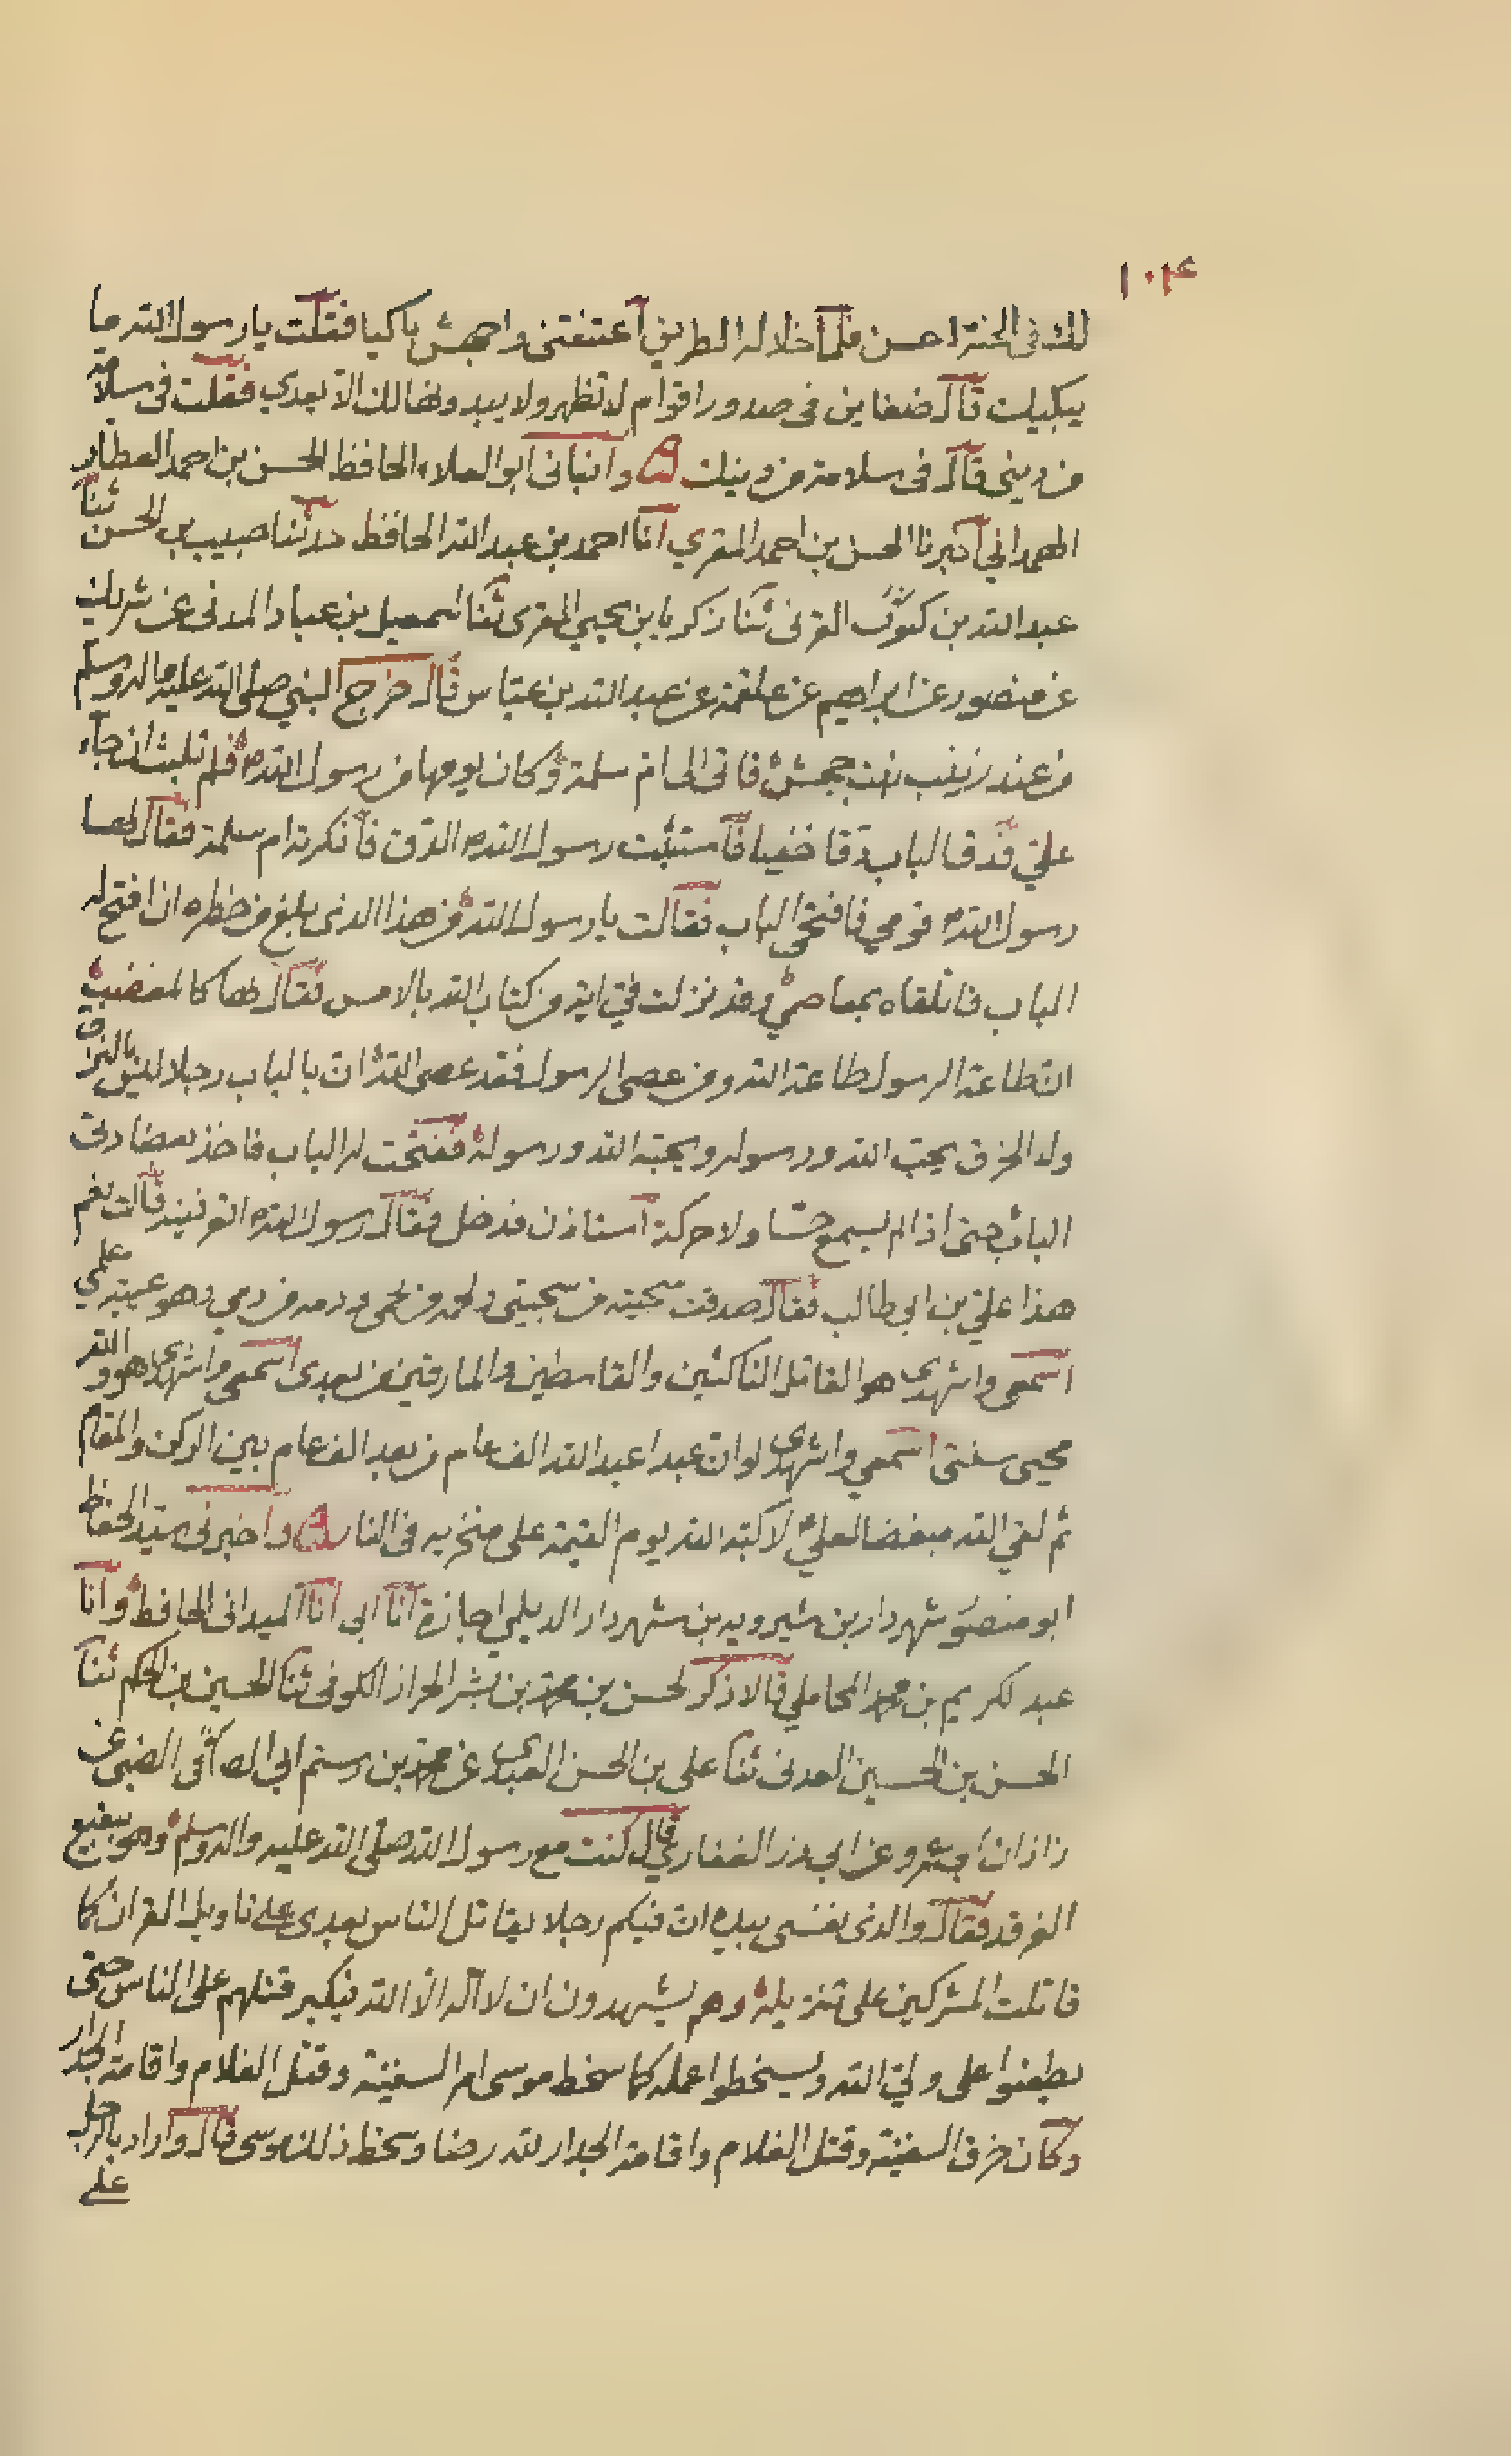 ١٠٤
لك فى الجنة احسن فلما خلا له الطريق اعتنقنى واجهش باكيا فقلت يا رسول الله ما
يبكيك قال ضغاين فى صدور اقوام لا تظهر ولا يبدونها لك الا بعدي فقلت فى سلامة
من دينى قال فى سلامة من دينك وانبانى ابو العلاء الحافظ الحسن بن احمد العطار
الهمدانى اخبرنا الحسن بن احمد المقري انا احمد بن عبد الله الحافظ حدثنا حبيب بن الحسن ثنا
عبد الله بن ثنا زكريا بن يحيى المقرى ثنا اسمعيل بن عباد المدنى عن شريك
عن منصور عن ابراهيم عن علقمة عن عبد الله بن عباس قال خرج النبي صلى الله عليه واله وسلم
من عند زينب بنت جحش فاتى الى ام سلمة وكان يومها من رسول الله ص فلم تلبث ان جاء
علي فدق الباب دقا خفيا فاستثبت رسول الله ص الدق فانكرته ام سلمة فقال لها
رسول الله ص قومي فافتحى الباب فقالت يا رسول الله من هذا الذى بلغ من خطره ان افتح له
الباب فاتلقاه بمعاصمي وقد نزلت في اية من كتاب الله بالامس فقال لها كالمغضب
ان طاعة الرسول طاعة الله ومن عصى الرسول فقد عصى الله ان بالباب رجلا ليس بالنزق
ولا الخرق يحب الله ورسوله ويحبه الله ورسوله ففتحت له الباب فاخذ بعضادتى
الباب حتى اذا لم يسمع حسا ولا حركة استاذن فدخل فقال رسول الله ص اتعرفينه قالت نعم
هذا علي بن ابي طالب فقال صدقت سجيته من سجيتى ولحمه من لحمى ودمه من دمي وهو عيبة علمي
اسمعى واشهدى هو القاتل الناكثين والقاسطين والمارقين من بعدى اسمعى واشهدى هو والله
محيى سنتى اسمعي واشهدى لو ان عبدا عبد الله الف عام من بعد الف عام بين الركن والمقام
ثم لقي الله مبغضا لعلي لاكبه الله يوم القيمة على منخريه فى النار واخبرنى سيد الحفاظ
ابو منصور شهردار بن شيرويه بن شهردار الديلمي اجازة انا ابى انا الميدانى الحافظ وانا
عبد لكريم بن محمد المحاملي قالا ذكر لحسن بن محمد بن بشر الخراز الكوفى ثنا الحسين بن الحكم ثنا
الحسن بن الحسين العدنى ثنا على بن الحسن العبدى عن محمد بن رستم ابي الضبى عن
زاذان ابى عمرو عن ابى ذر الغفاري قال كنت مع رسول الله صلى الله عليه واله وسلم وهو ببقيع
الغرقد فقال والذى نفسى بيده ان فيكم رجلا يقاتل الناس بعدى على تاويل القران كما
قاتلت المشركين على تنزيله وهم يشهدون ان لا اله الا الله فيكبر قتلهم على الناس حتى
يطعنوا على ولي الله ويسخطوا عمله كما سخط موسى امر السفينة وقتل الغلام واقامة الجدار
وكان خرق السفينة وقتل الغلام واقامة الجدار لله رضا وسخط ذلك موسى قال واراد بالرجل
على